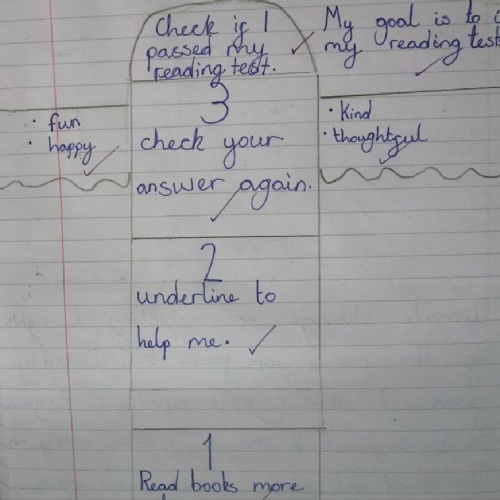 Check if I
passed my
reading test.
My goal is to
my reading test
3
check your
answer again.
• fun
• happy
• Kind
• thoughtful
2
underline to
help me.
1
Read books more